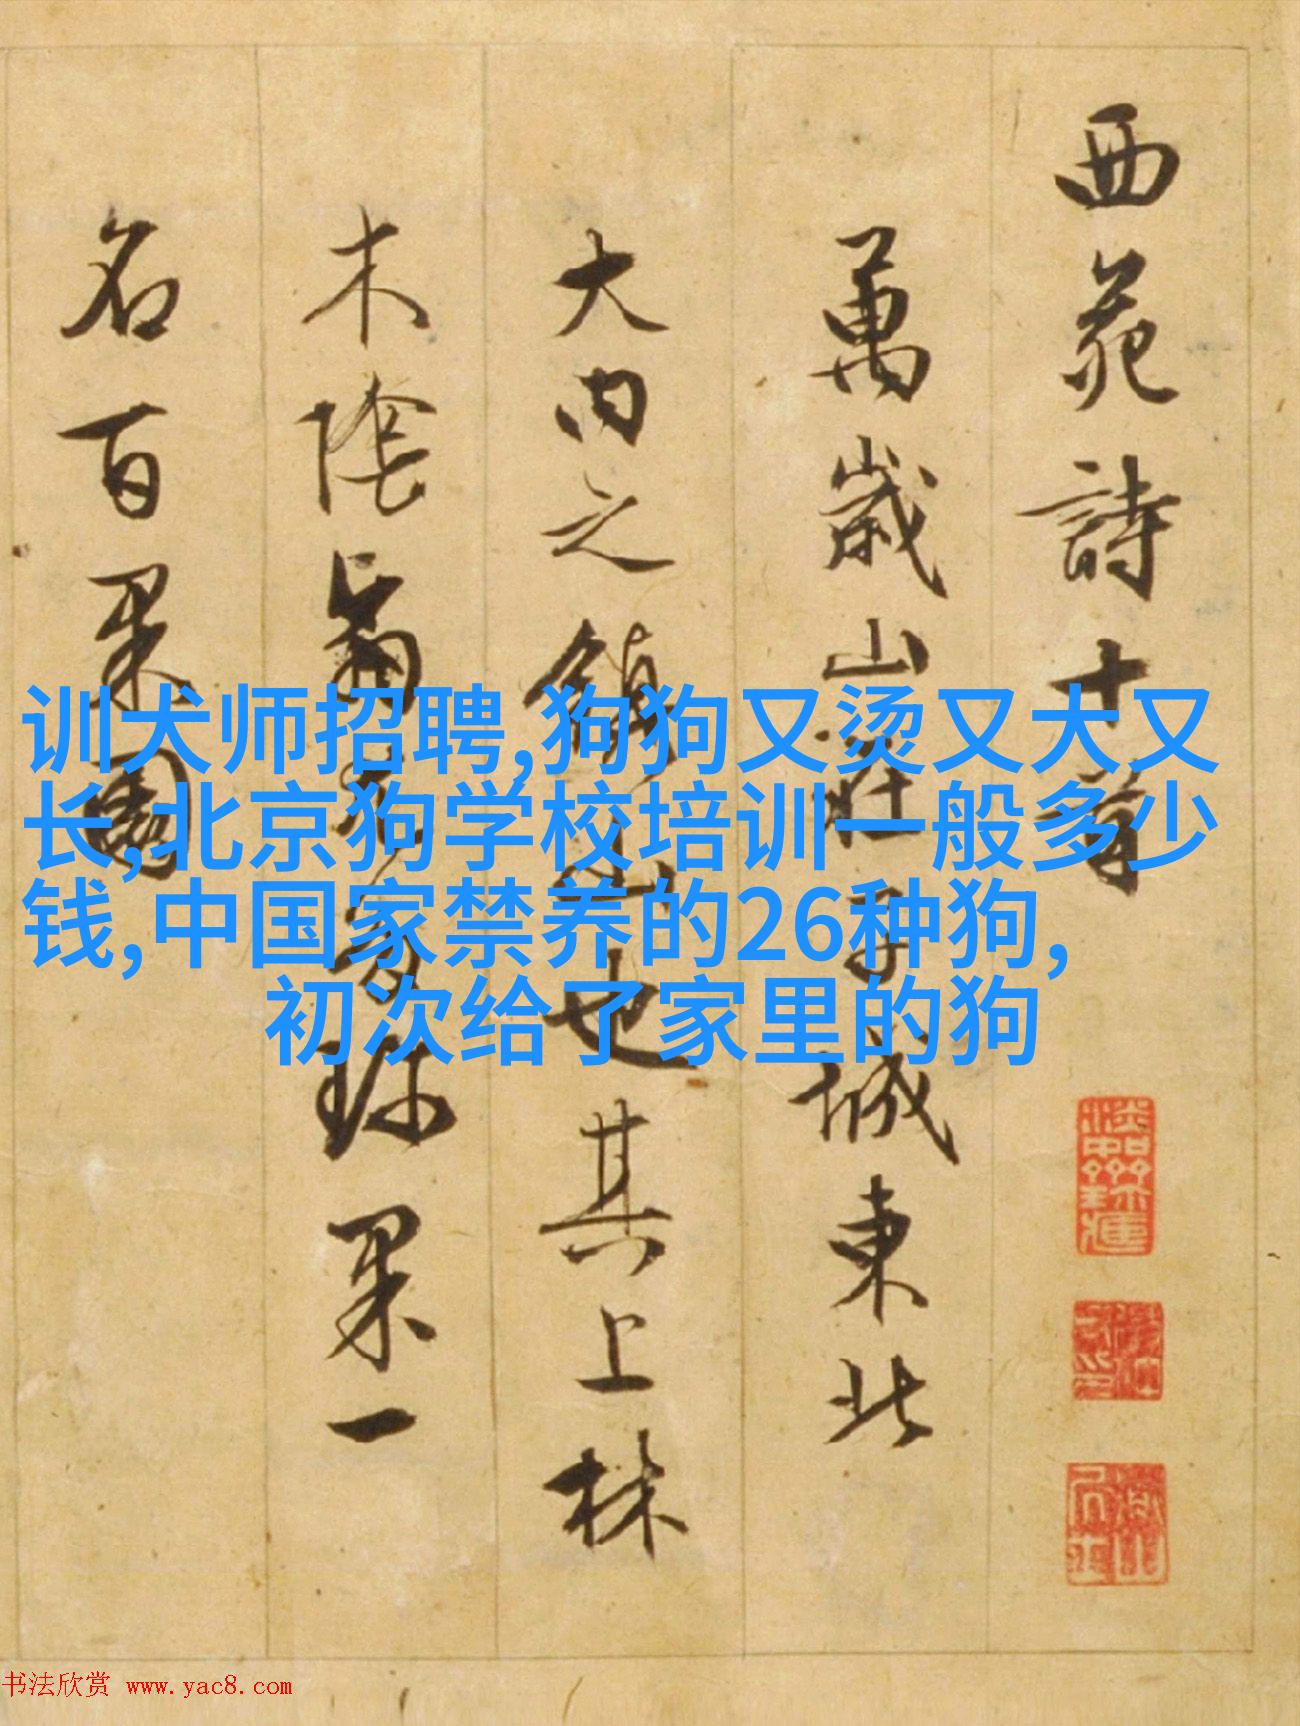 西苑詩十首
萬歲山在子城東北
大内之鎮山也其上林
木陰翳尤多珍果一
名百果園
训犬师招聘,狗狗又烫又大又
长,北京狗学校培训一般多少
钱,中国家禁养的26种狗,
初次给了家里的狗
书法欣赏 www.yac8.com